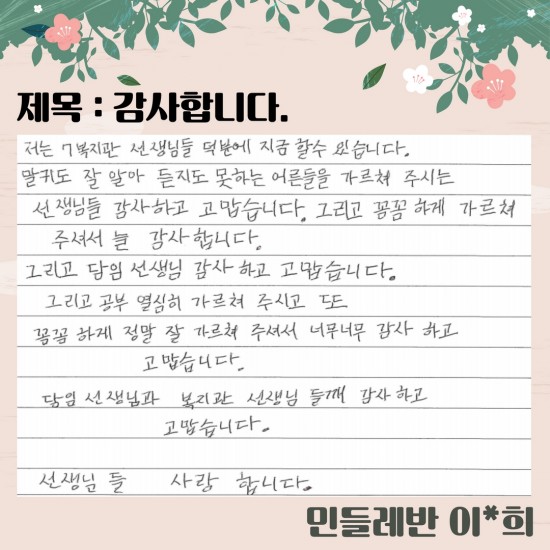 제목 : 감사합니다.
저는 7복지관 선생님들 덕분에 지금 할수 있습니다.
말귀도 잘 알아 듣지도 못하는 어른들을 가르쳐 주시는
선생님들 감사하고 고맙습니다. 그리고 꼼꼼 하게 가르쳐
주셔서 늘 감사합니다.
그리고 담임 선생님 감사 하고 고맙습니다.
그리고 공부 열심히 가르쳐 주시고 또또
꼼꼼 하게 정말 잘 가르쳐 주셔서 너무너무 감사 하고
고맙습니다.
담임 선생님과 복지관 선생님 들께 감사 하고
고맙습니다.
선생님 들 사랑 합니다.
민들레반 이*희